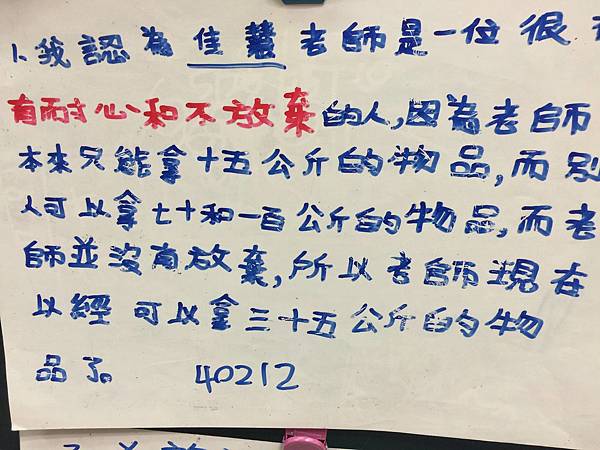 1.我認為佳慧老師是一位很
有耐心和不放棄的人,因為老師
本來只能拿十五公斤的物品,而別
人可以拿七十和一百公斤的物品,而老
師並沒有放棄,所以老師現在
以經可以拿三十五公斤的物
品了。 40212